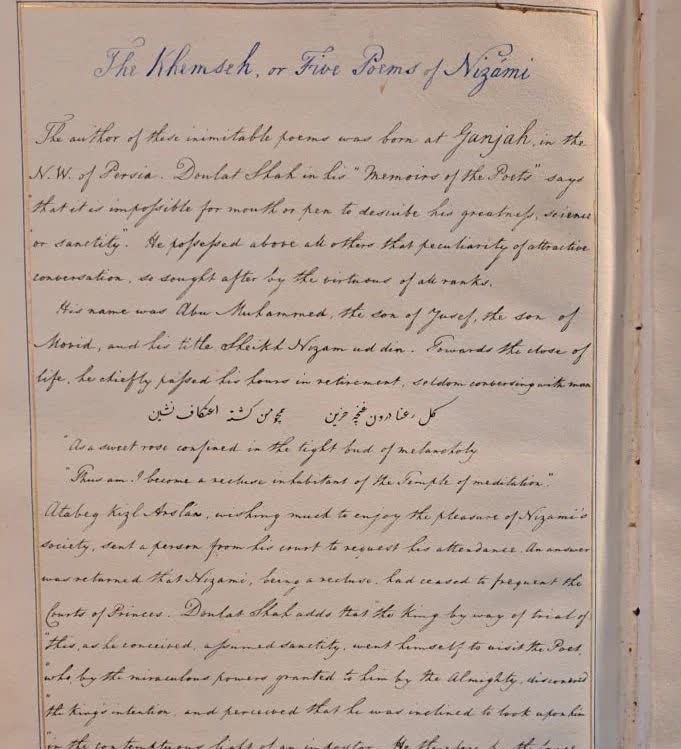 The Khemseh, or Five Poems of Nizámi
The author of these inimitable poems was born at Ganjah, in the
N.W. of Persia. Doulat Shah in his "Memoirs of the Poets" says
"that it is impossible for mouth or pen to describe his greatness, science
"or sanctity". He possessed above all others that peculiarity of attractive
conversation, so sought after by the virtuous of all ranks.
His name was Abu Muhammed, the son of Yusef, the son of
Movid, and his title Sheikh Nizam ud din. Towards the close of
life, he chiefly passed his hours in retirement, seldom conversing with man
گل رعنا درون غنچه حزین همچو من گشته اعتکاف نشین
"As a sweet rose confined in the tight bud of melancholy
"Thus am I become a recluse inhabitant of the Temple of meditation".
Atabeg Kizl Arslán, wishing much to enjoy the pleasure of Nizami's
society, sent a person from his court to request his attendance. An answer
was returned that Nizami, being a recluse, had ceased to frequent the
Courts of Princes. Doulat Shah adds that "the King by way of trial of
"this, as he conceived, assumed sanctity, went himself to visit the Poet,
"who, by the miraculous powers granted to him by the Almighty, discovered
"the King's intention, and perceived that he was inclined to look upon him
"in the contemptuous light of an impostor. He therefore